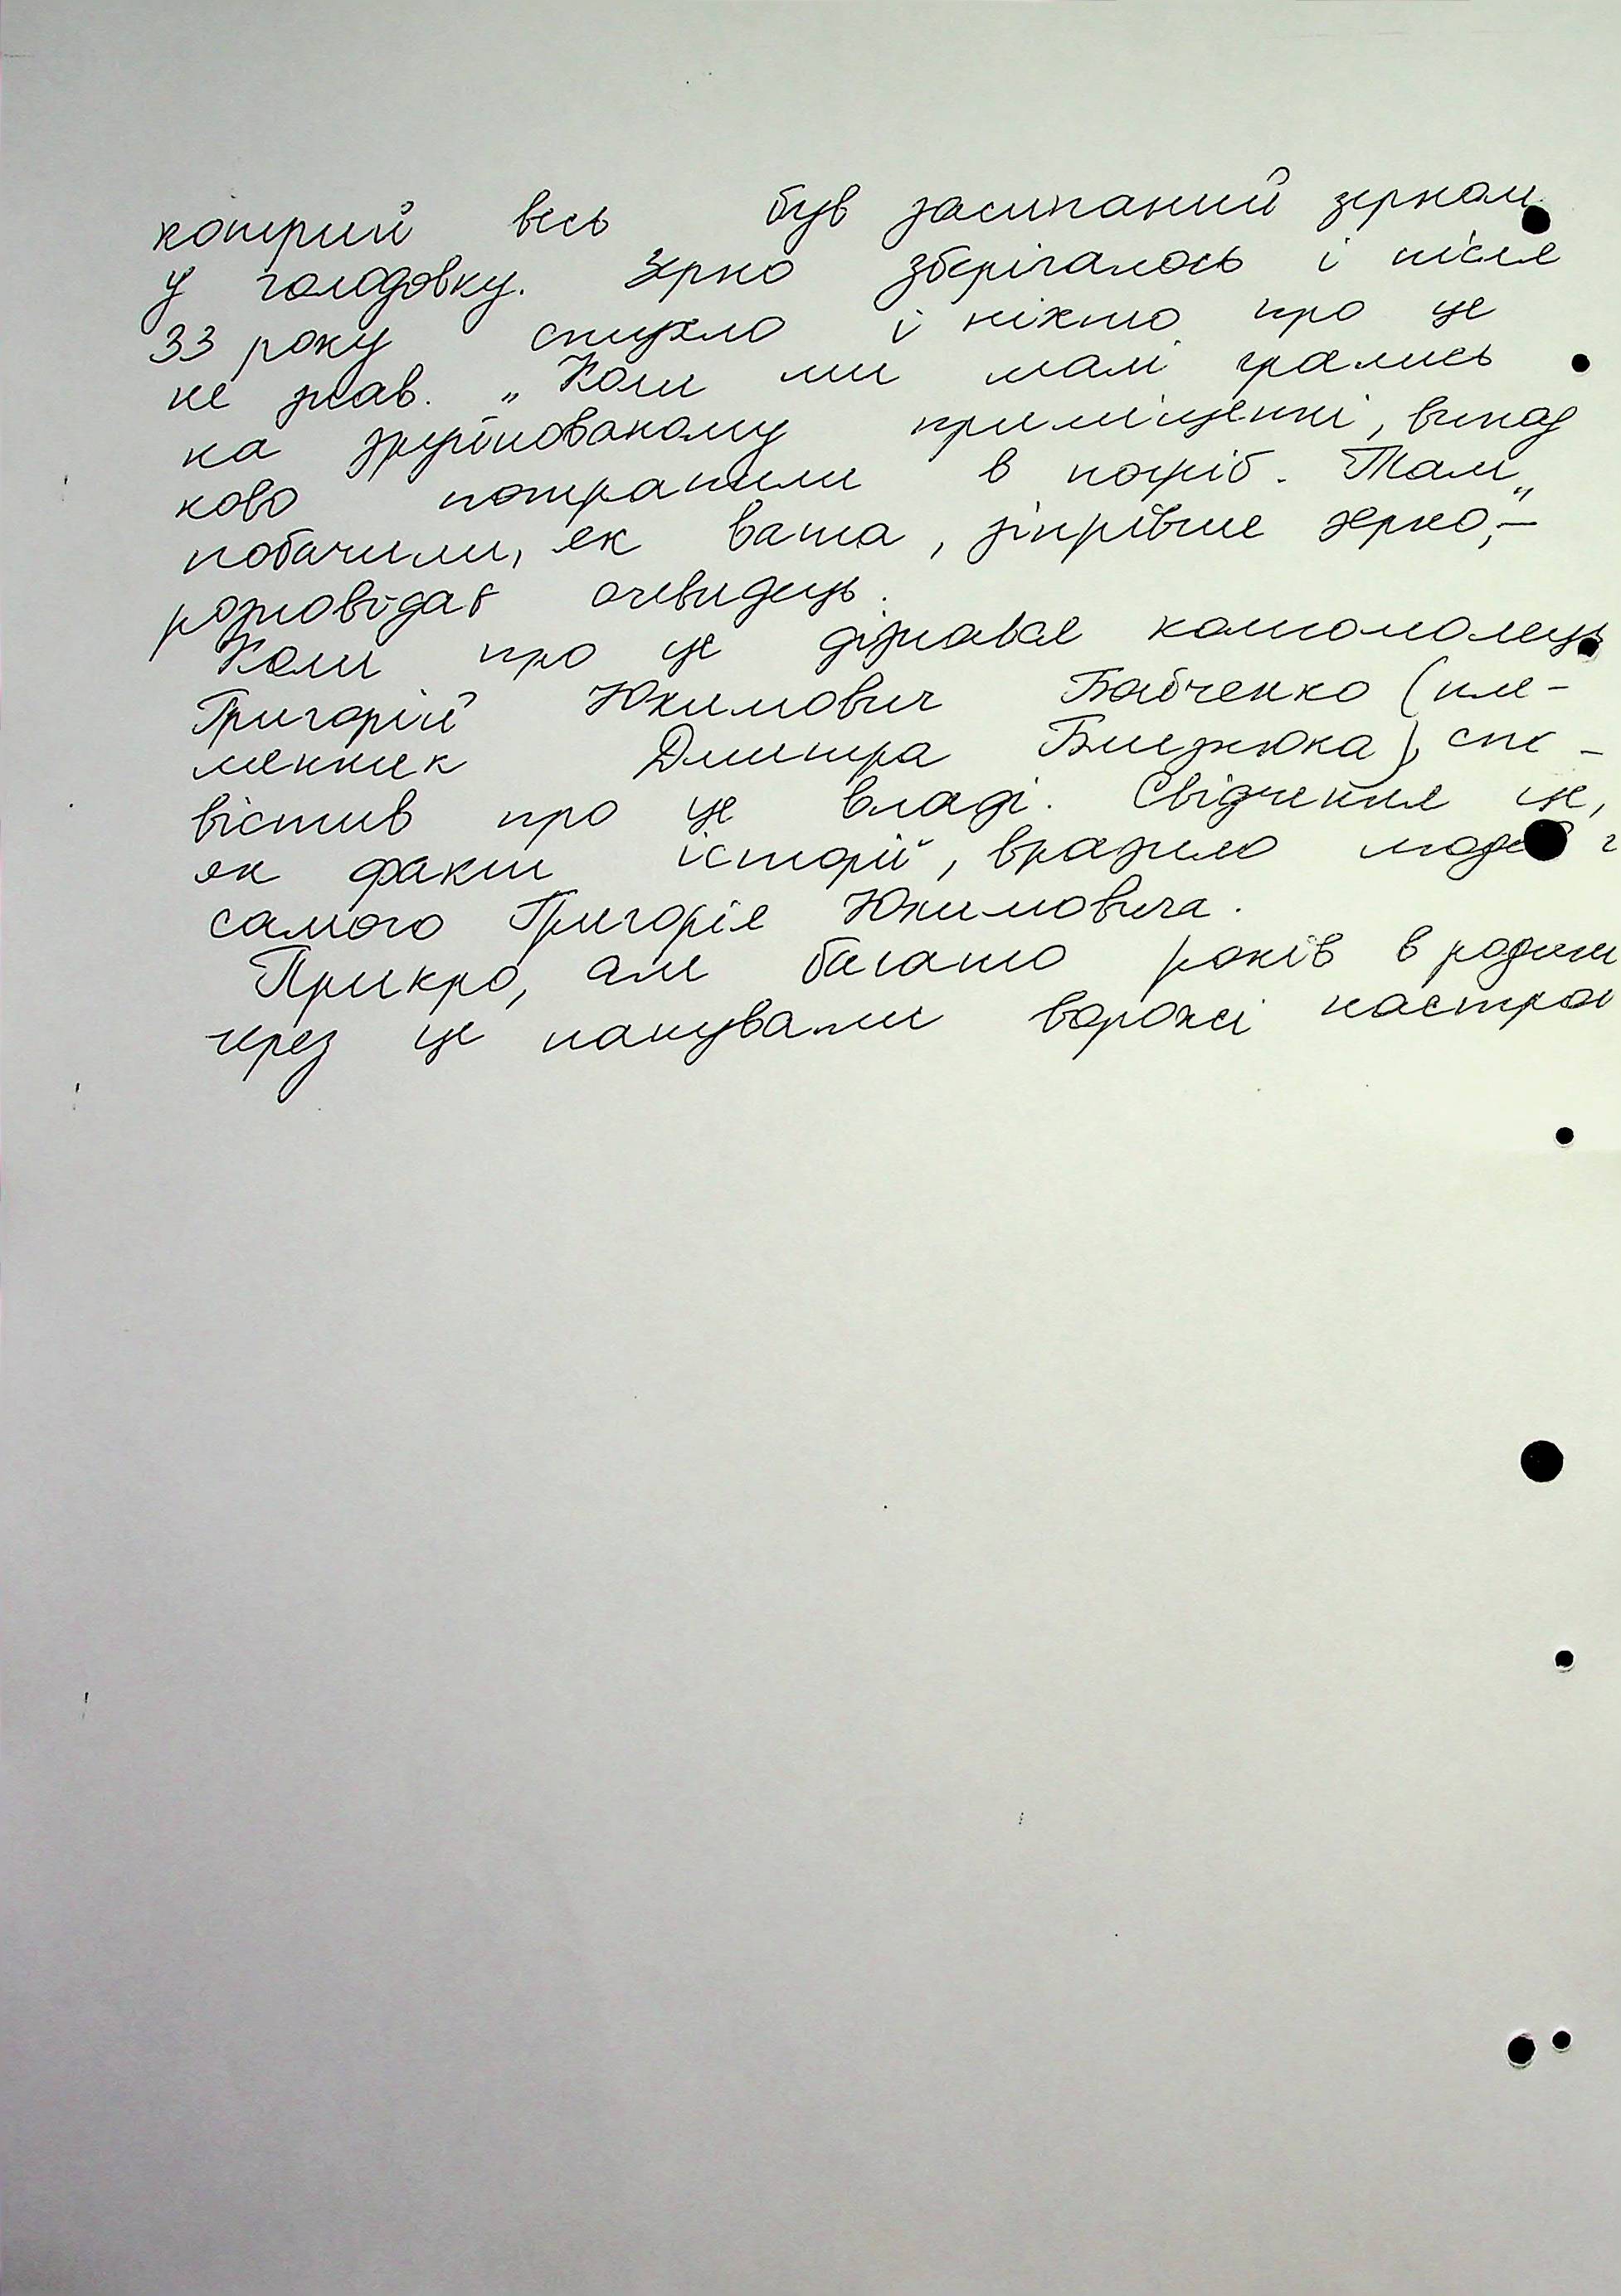 котрий весь був засипаний зерном
у голодовку. Зерно зберігалось і після
33 року стухло і ніхто про це
не знав. „Коли ми малі грались
на зруйнованому приміщенні, випад
ково потрапили в погріб. Там
побачили, як вата, зіпрівше зерно,"–
розповідає очевидець.
Коли про це дізнався комсомолець
Григорій Юхимович Бабченко (пле-
менник Дмитра Близнюка), спо-
вістив про це владі. Свідчення це,
як факт історії, вразило людей і
самого Григорія Юхимовича.
Прикро, але багато років в родині
через це панували ворожі настрої